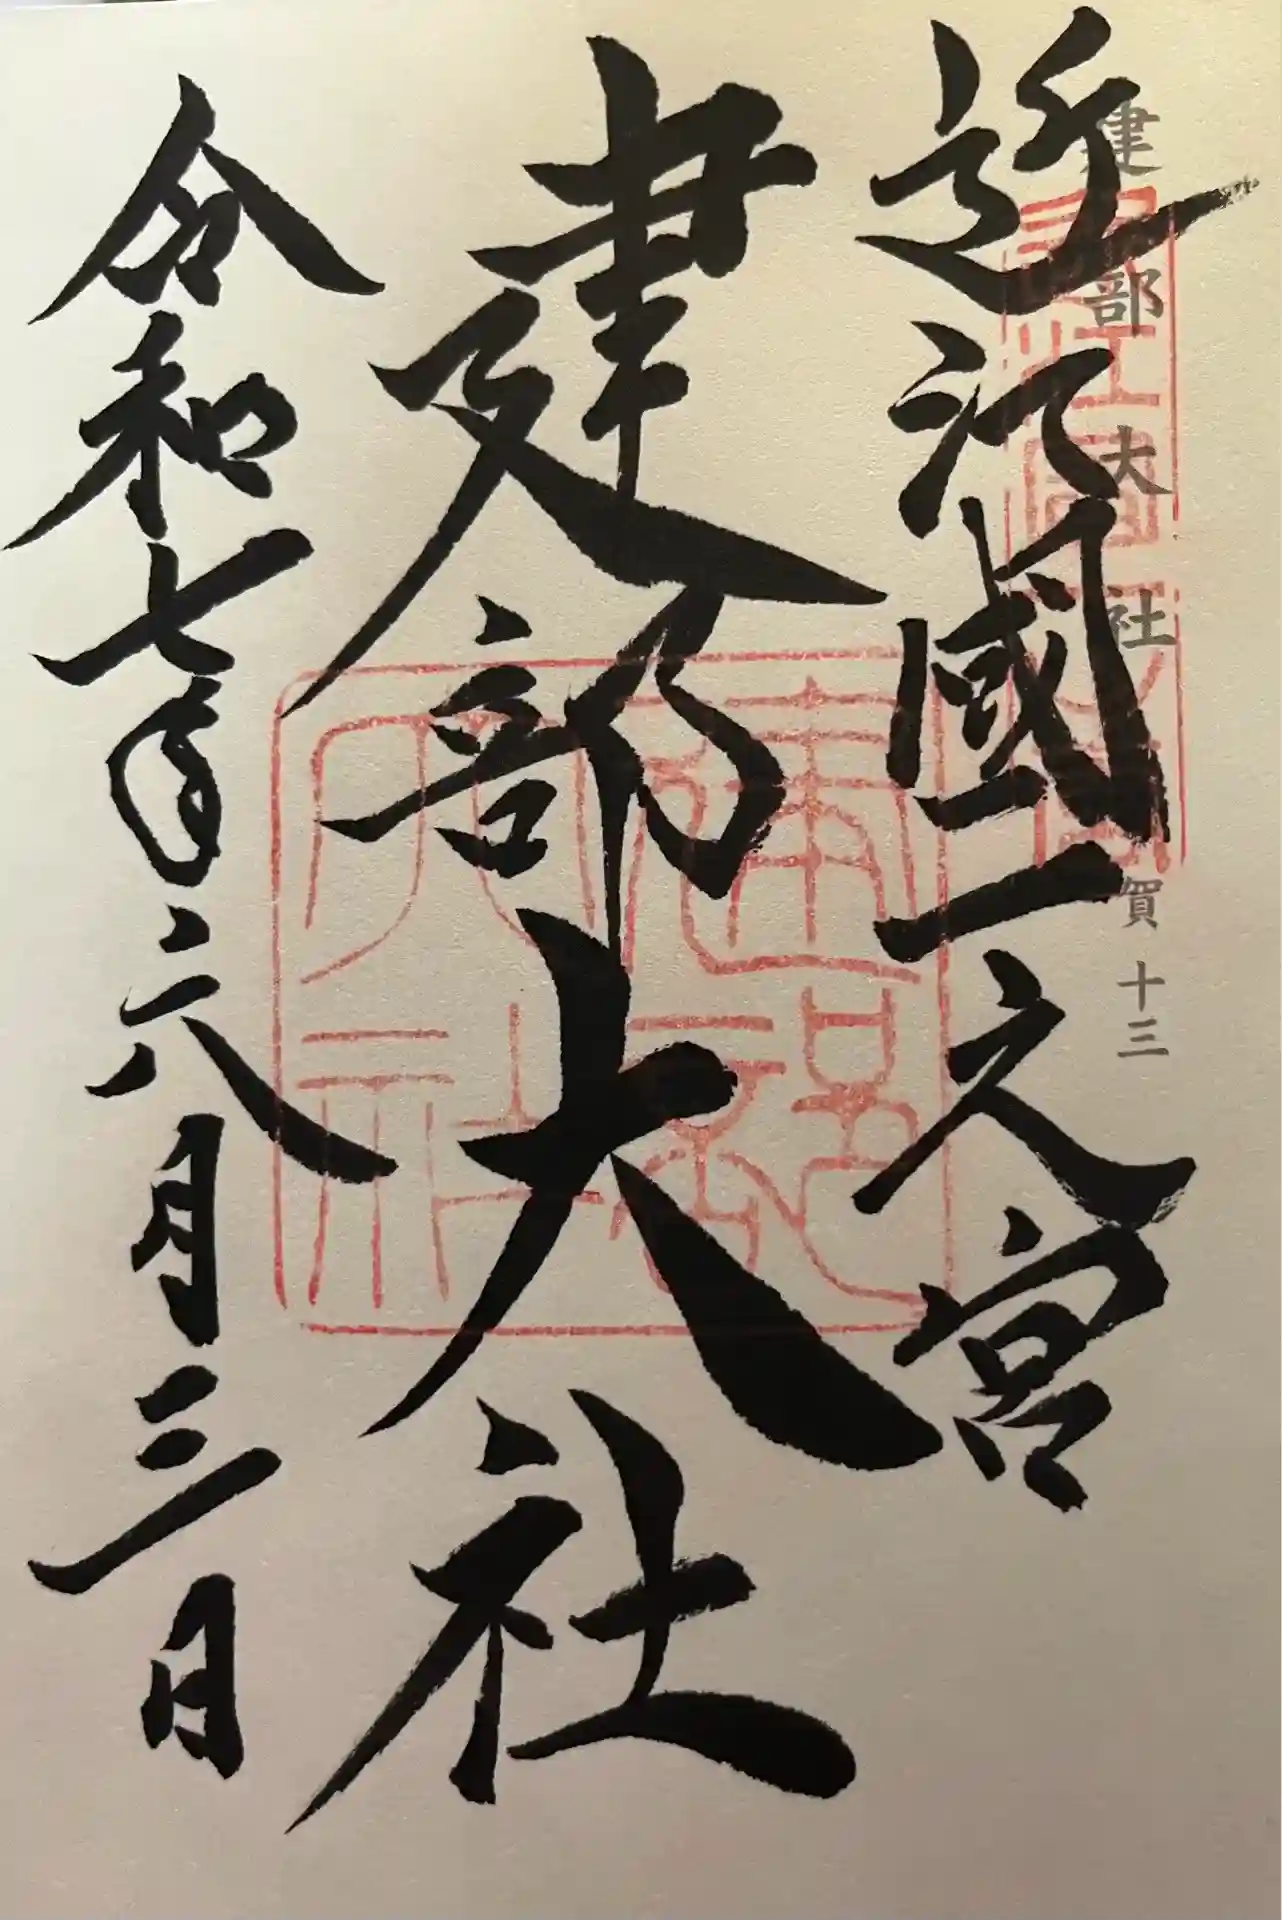 建部大社
賀 十三
近江國一之宮
建部大社
令和七年六月三日